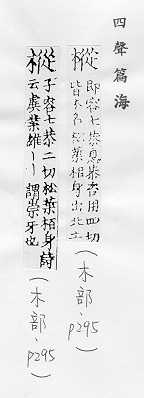 四聲篇海
樅 即容七恭息恭香用四切
皆木名松葉栢身出北土
(木部、p295)
樅 子容七恭二切松葉栢身詩
云虡業維丨丨謂崇牙也
(木部、p295)